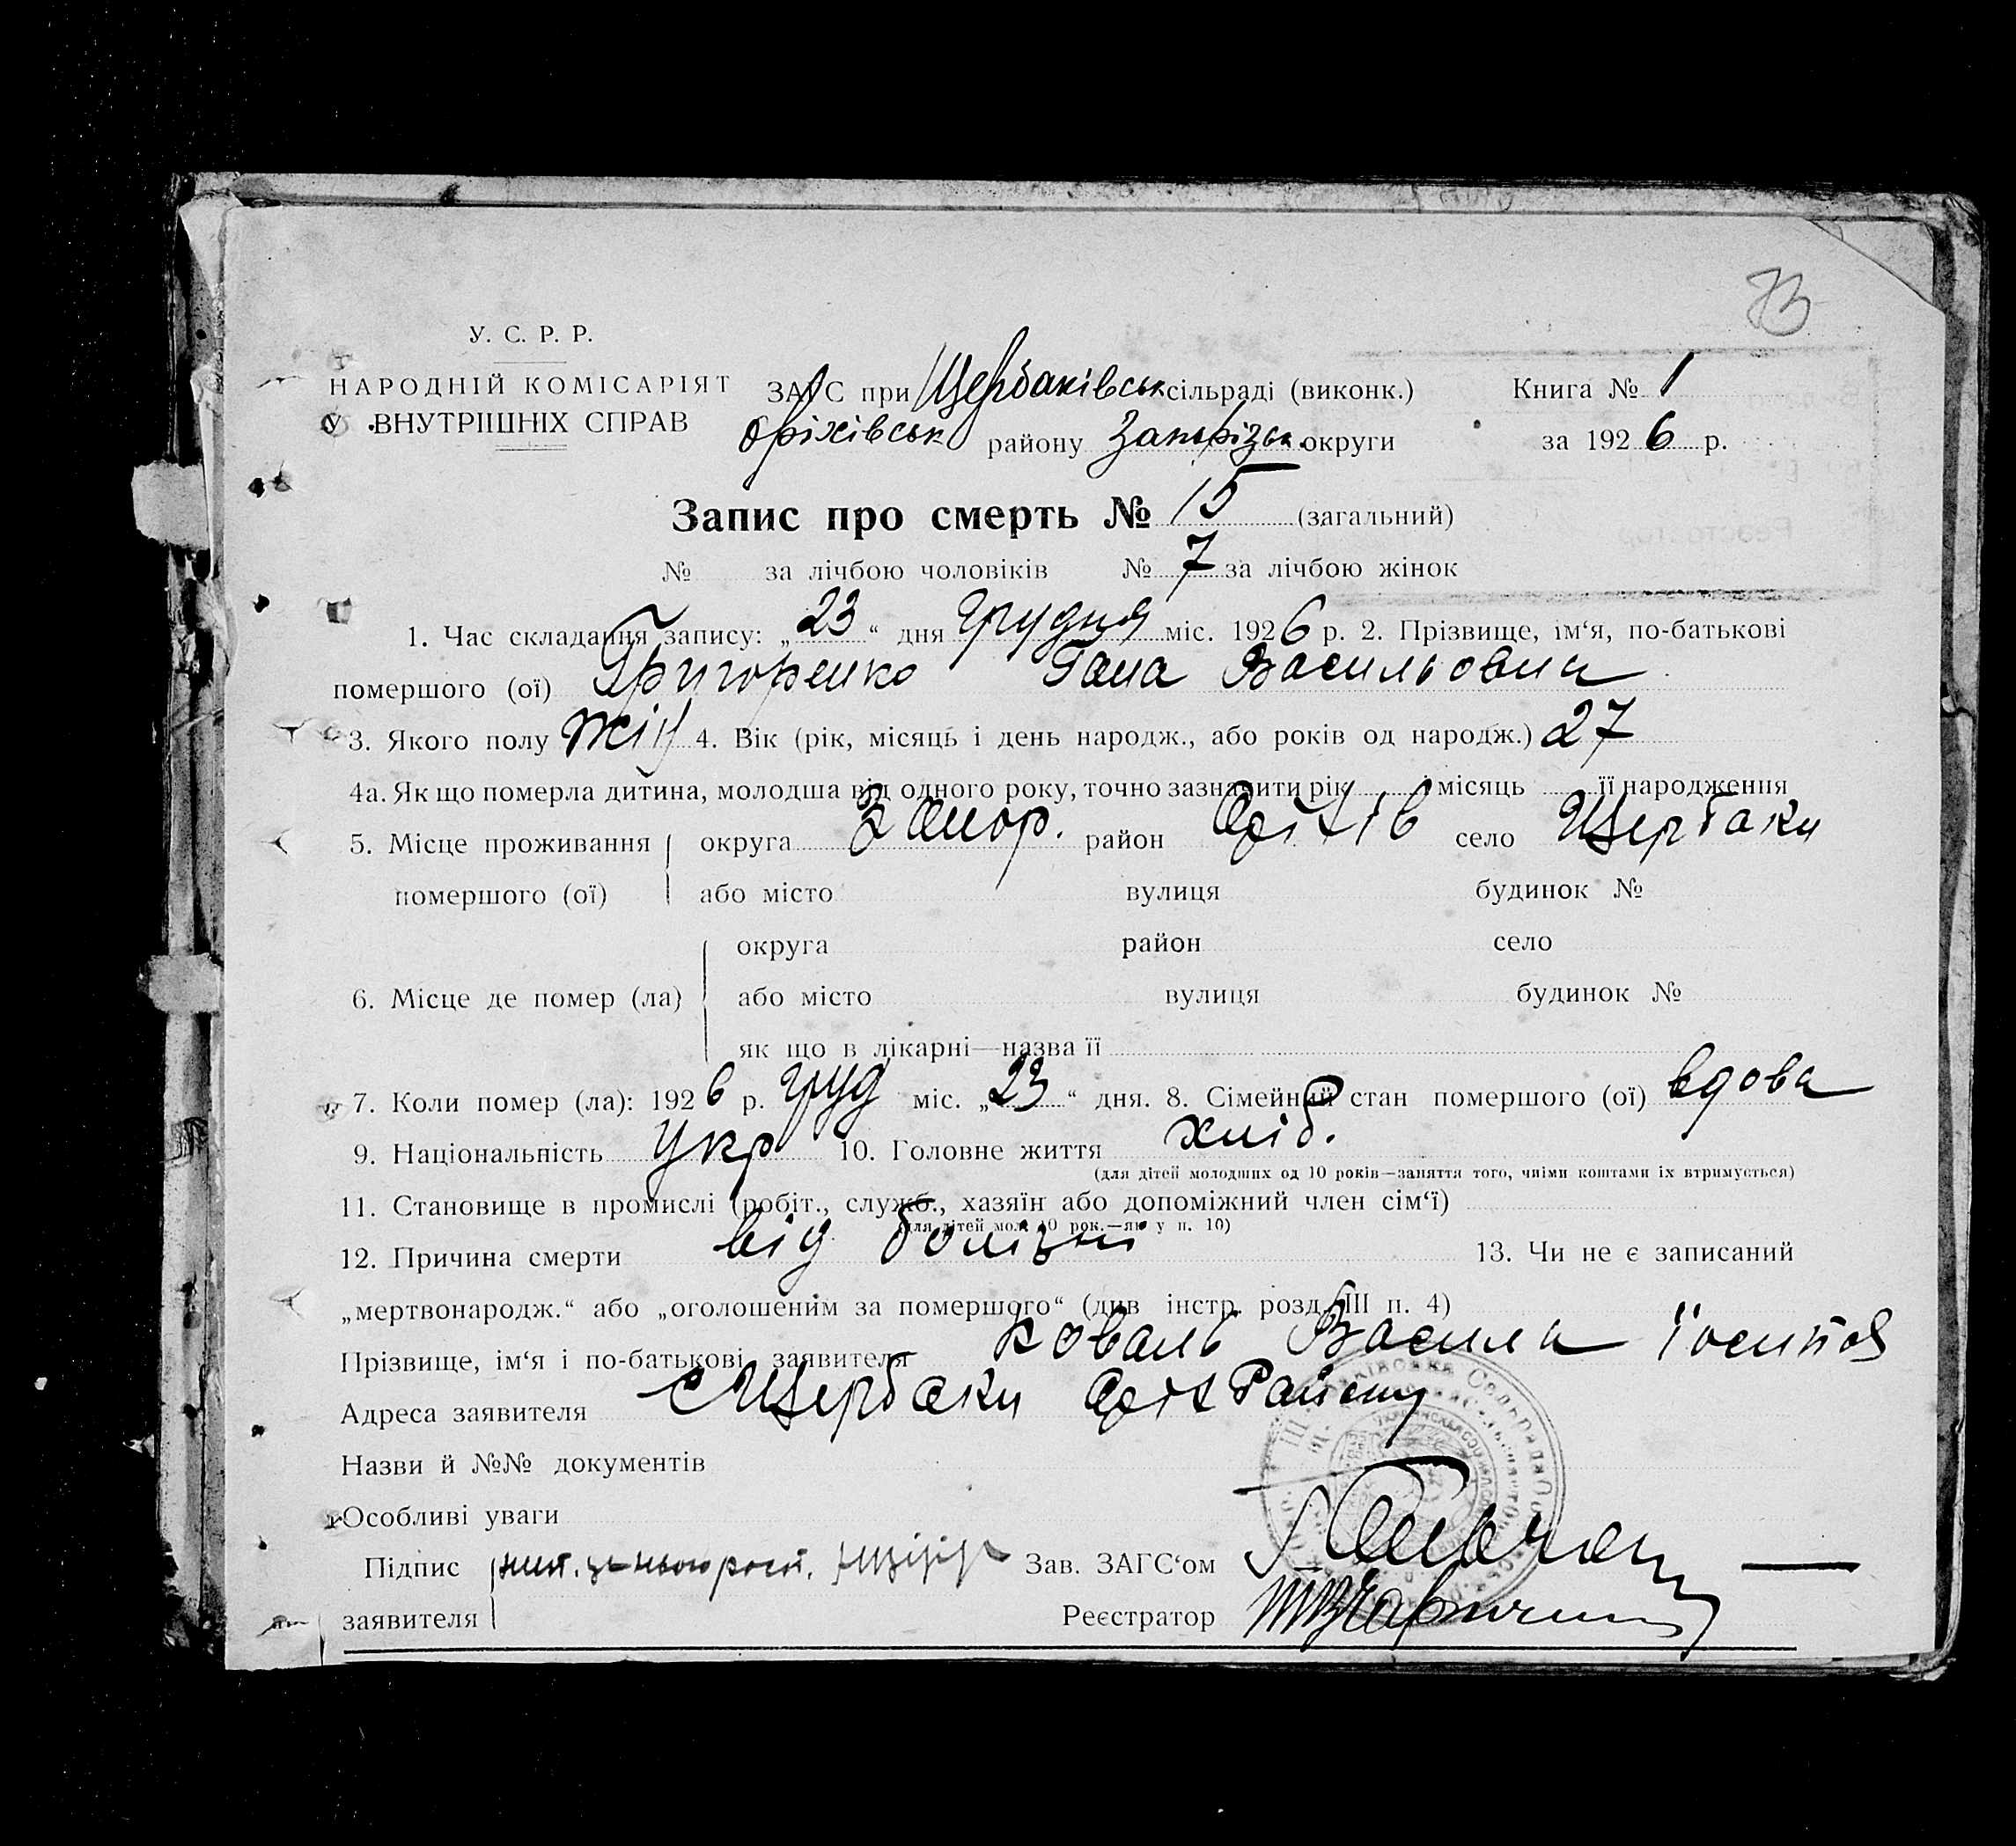 73
У. С. Р. Р.
НАРОДНІЙ КОМІСАРІЯТ ЗАГС при Щербаківськ сільраді (виконк.) Книга № 1
ВНУТРІШНІХ СПРАВ Оріхівськ району Запорізьк округи за 1926 р.
Запис про смерть № 15 (загальний)
№ за лічбою чоловіків № 7 за лічбою жінок
1. Час складання запису: „23“ дня Грудня міс. 1926 р. 2. Прізвище, ім‘я, по-батькові
помершого (ої) Григоренко Гана Васильовна
3. Якого полу жін 4. Вік (рік, місяць і день народж., або років од народж.) 27
4а. Як що померла дитина, молодша від одного року, точно зазначити рік місяць її народження
5. Місце проживання округа Запор. район Оріхів село Щербаки
помершого (ої) або місто вулиця будинок №
округа район село
6. Місце де помер (ла) або місто вулиця будинок №
як що в лікарні—назва її
7. Коли помер (ла): 1926 р. груд міс. „23“ дня. 8. Сімейний стан помершого (ої) вдова
9. Національність Укр 10. Головне життя хліб.
(для дітей молодших од 10 років—заняття того, чиїми коштами їх втримується)
11. Становище в промислі (робіт., служб., хазяїн або допоміжний член сім‘ї)
(для дітей мол. 10 рок.—як у п. 10)
12. Причина смерти від болізні 13. Чи не є записаний
„мертвонародж.“ або „оголошеним за помершого“ (див інстр. розд. III п. 4)
Прізвище, ім‘я і по-батькові заявителя Коваль Васила Іосипов
Адреса заявителя с Щербаки Оріх Району
Назви й №№ документів
Особливі уваги
Підпис Зав. ЗАГС‘ом
заявителя Реєстратор